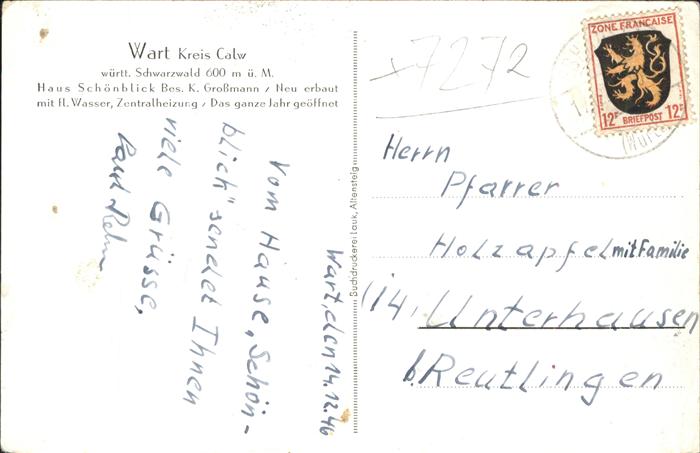 Wart Kreis Calw
württ. Schwarzwald 600 m ü. M.
Haus Schönblick Bes. K. Großmann / Neu erbaut
mit fl. Wasser, Zentralheizung / Das ganze Jahr geöffnet
Wart, den 14.12.46
Vom Hause „Schön-
blick" sendet Ihnen
viele Grüsse,
Buchdruckerei Lauk, Altensteig
7272
ZONE FRANÇAISE
12 PF BRIEFPOST 12 PF
Herrn
Pfarrer
Holzapfel mit Familie
(14) Unterhausen
b. Reutlingen